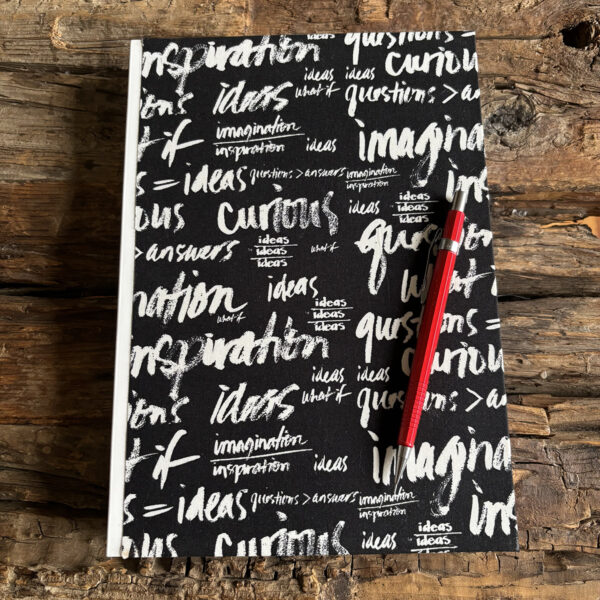 inspiration questions
curious
ideas ideas ideas
what if
ions questions > an
t if imagination ideas imagina
inspiration
s = ideas questions > answers imagination ins
inspiration
ous curious ideas ideas
ideas
ideas
> answers ideas what if ques
ideas
ideas
what if
nation ideas
what if ideas
ideas
ideas questions =
inspiration curious
ideas ideas
ions ideas what if questions > an
t if imagination ideas imagina
inspiration
s = ideas questions > answers imagination ins
inspiration
ous curious ideas ideas
ideas
ideas